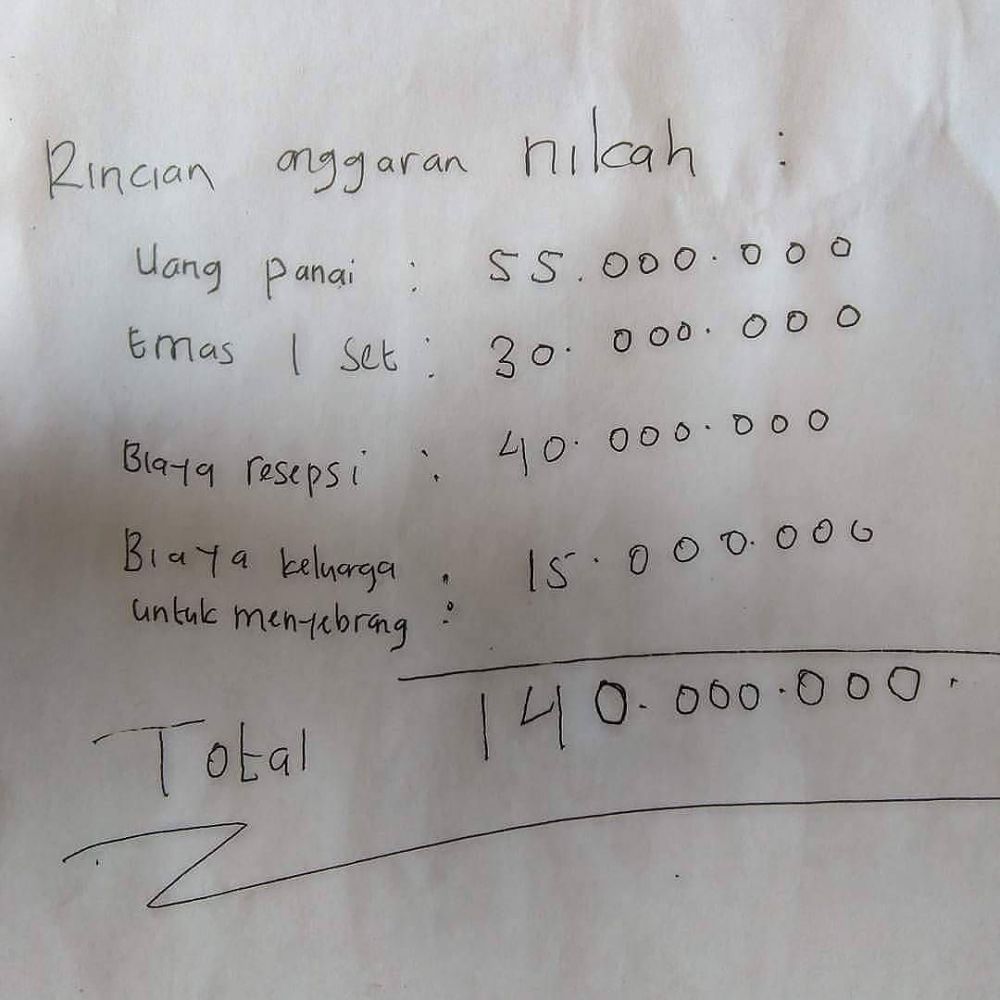 Rincian anggaran nikah :
Uang panai : 55.000.000
Emas 1 set : 30.000.000
Biaya resepsi : 40.000.000
Biaya keluarga : 15.000.000
untuk menyebrang :
Total 140.000.000.